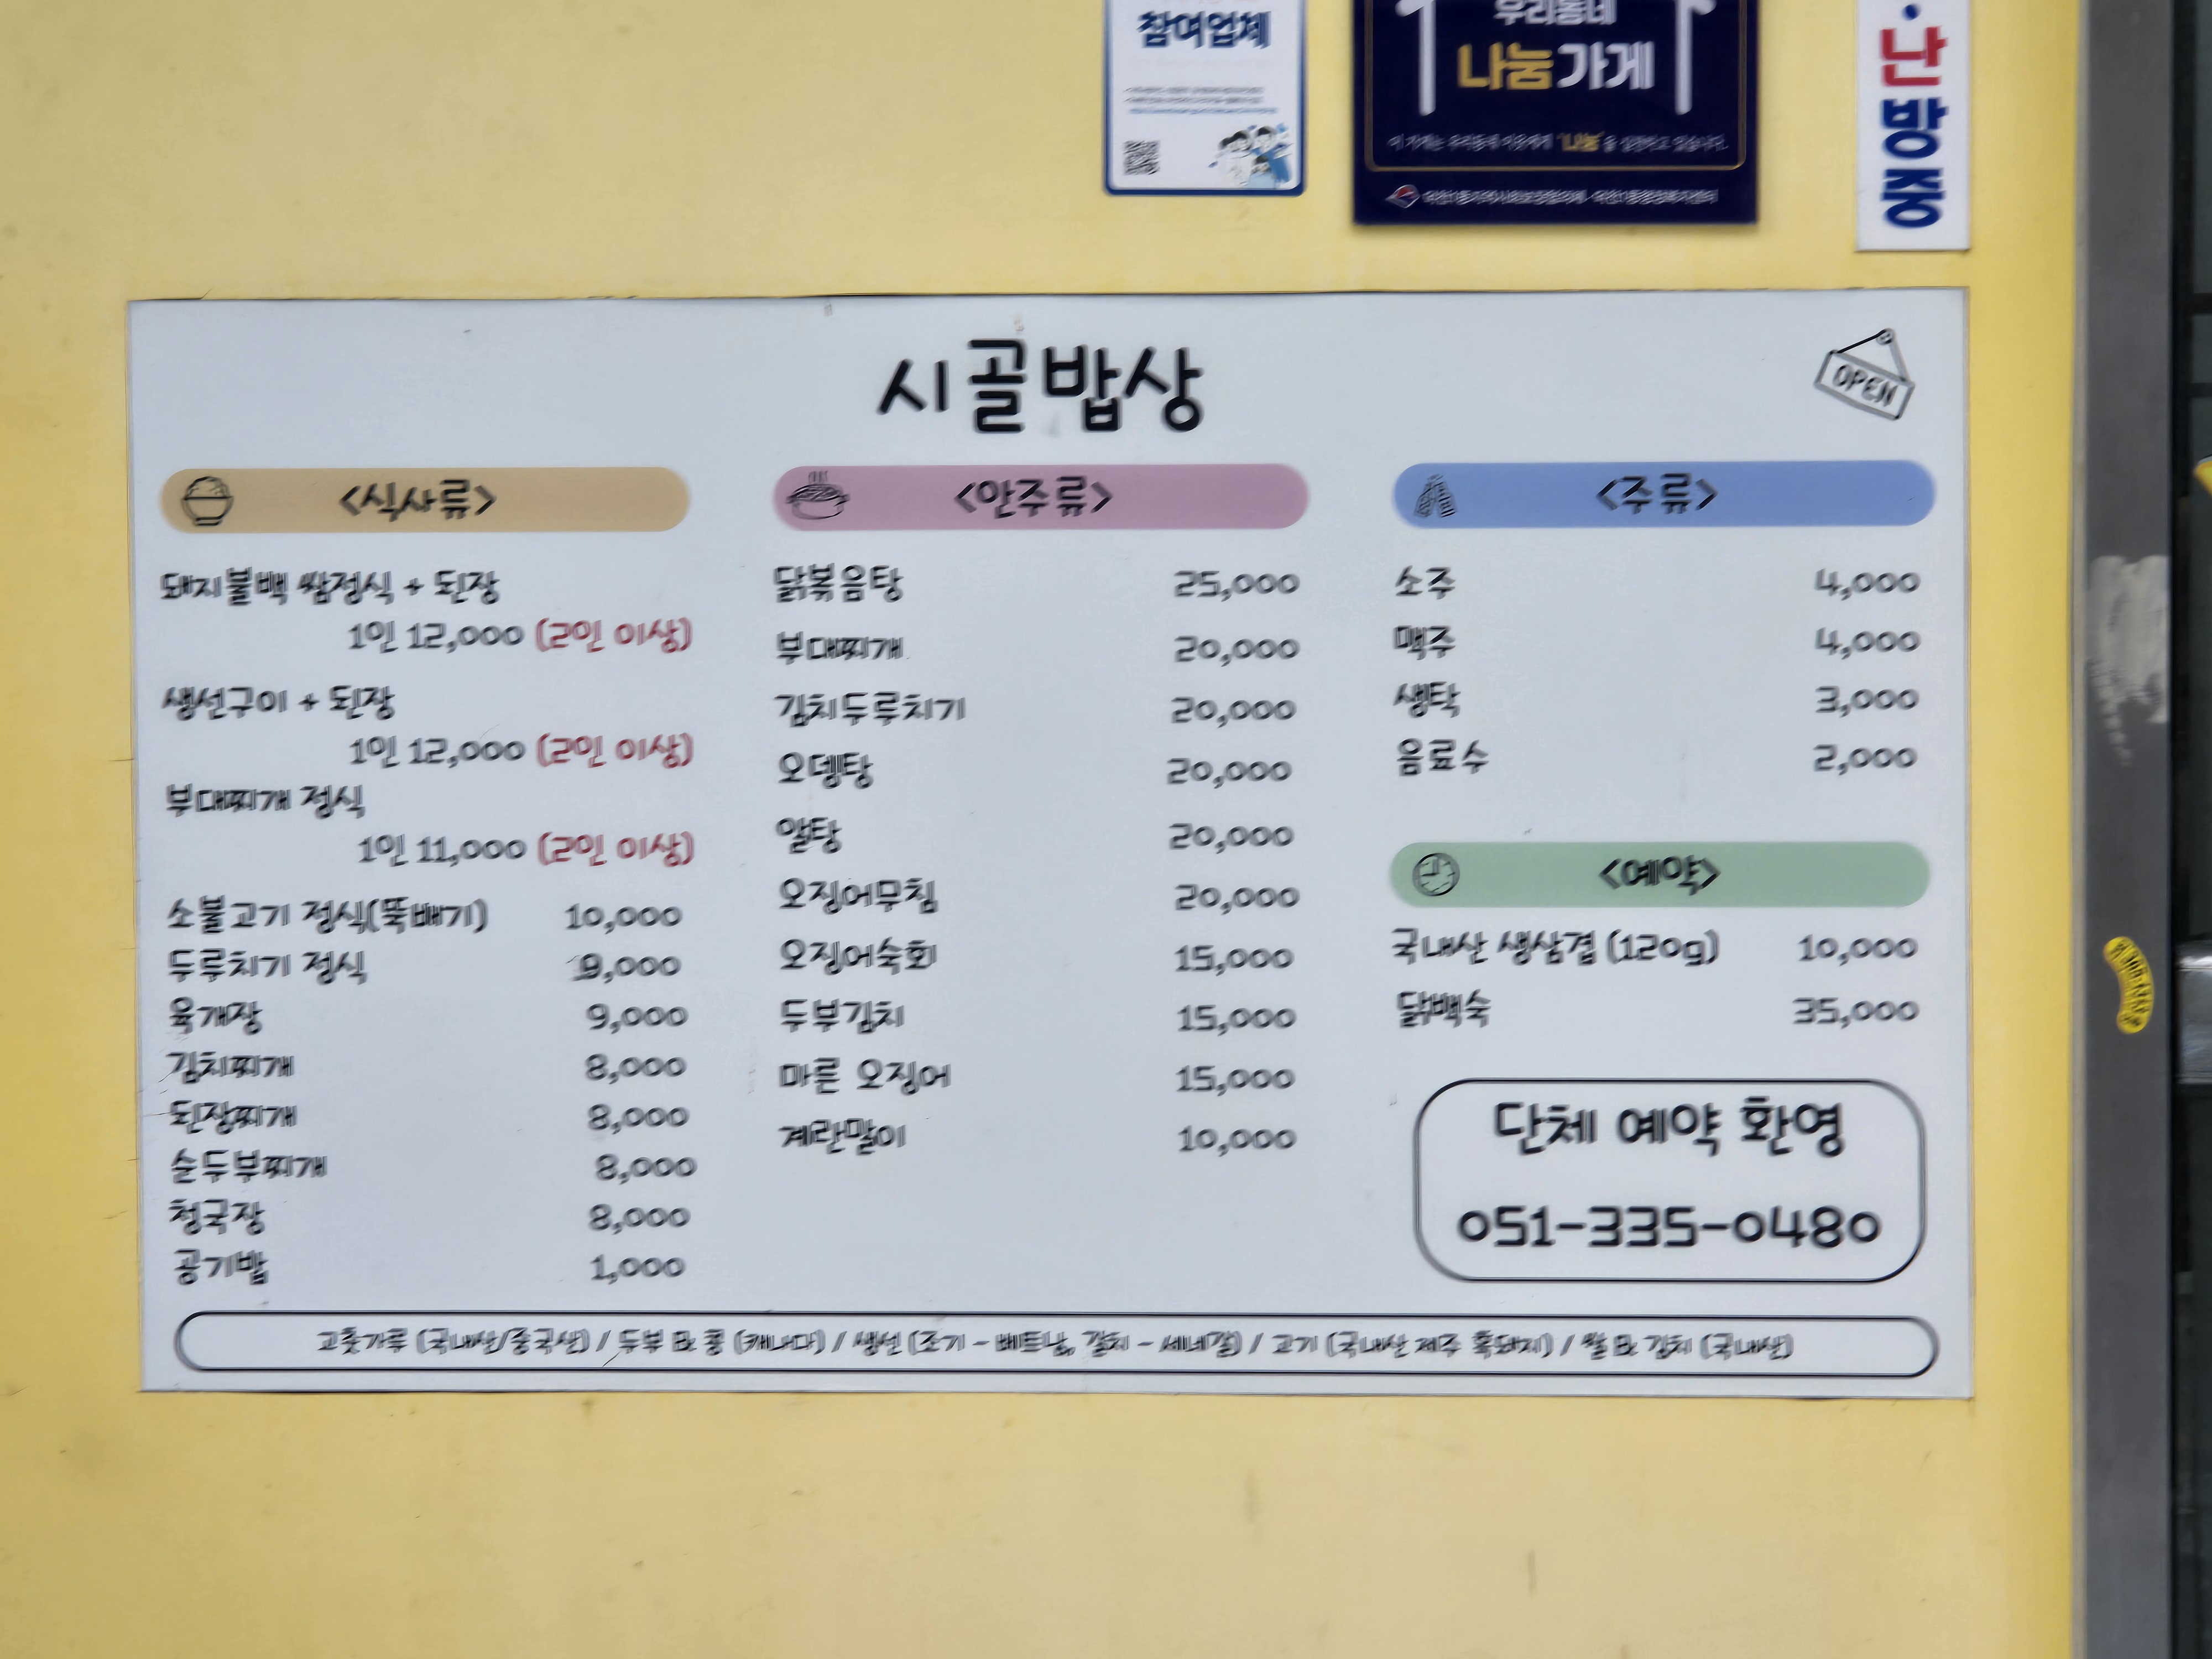 참여업체
우리동네
나눔가게
이 가게는 우리동네 이웃에게 '나눔'을 실천하고 있습니다.
시골밥상
OPEN
<식사류>
돼지불백 쌈정식 + 된장
1인 12,000 (2인 이상)
생선구이 + 된장
1인 12,000 (2인 이상)
부대찌개 정식
1인 11,000 (2인 이상)
소불고기 정식(뚝배기) 10,000
두루치기 정식 9,000
육개장 9,000
김치찌개 8,000
된장찌개 8,000
순두부찌개 8,000
청국장 8,000
공기밥 1,000
<안주류>
닭볶음탕 25,000
부대찌개 20,000
김치두루치기 20,000
오뎅탕 20,000
알탕 20,000
오징어무침 20,000
오징어숙회 15,000
두부김치 15,000
마른 오징어 15,000
계란말이 10,000
<주류>
소주 4,000
맥주 4,000
생탁 3,000
음료수 2,000
<예약>
국내산 생삼겹 (120g) 10,000
닭백숙 35,000
단체 예약 환영
051-335-0480
고춧가루 (국내산/중국산) / 두부 & 콩 (캐나다) / 생선 (조기 - 베트남, 갈치 - 세네갈) / 고기 (국내산 제주 흑돼지) / 쌀 & 김치 (국내산)